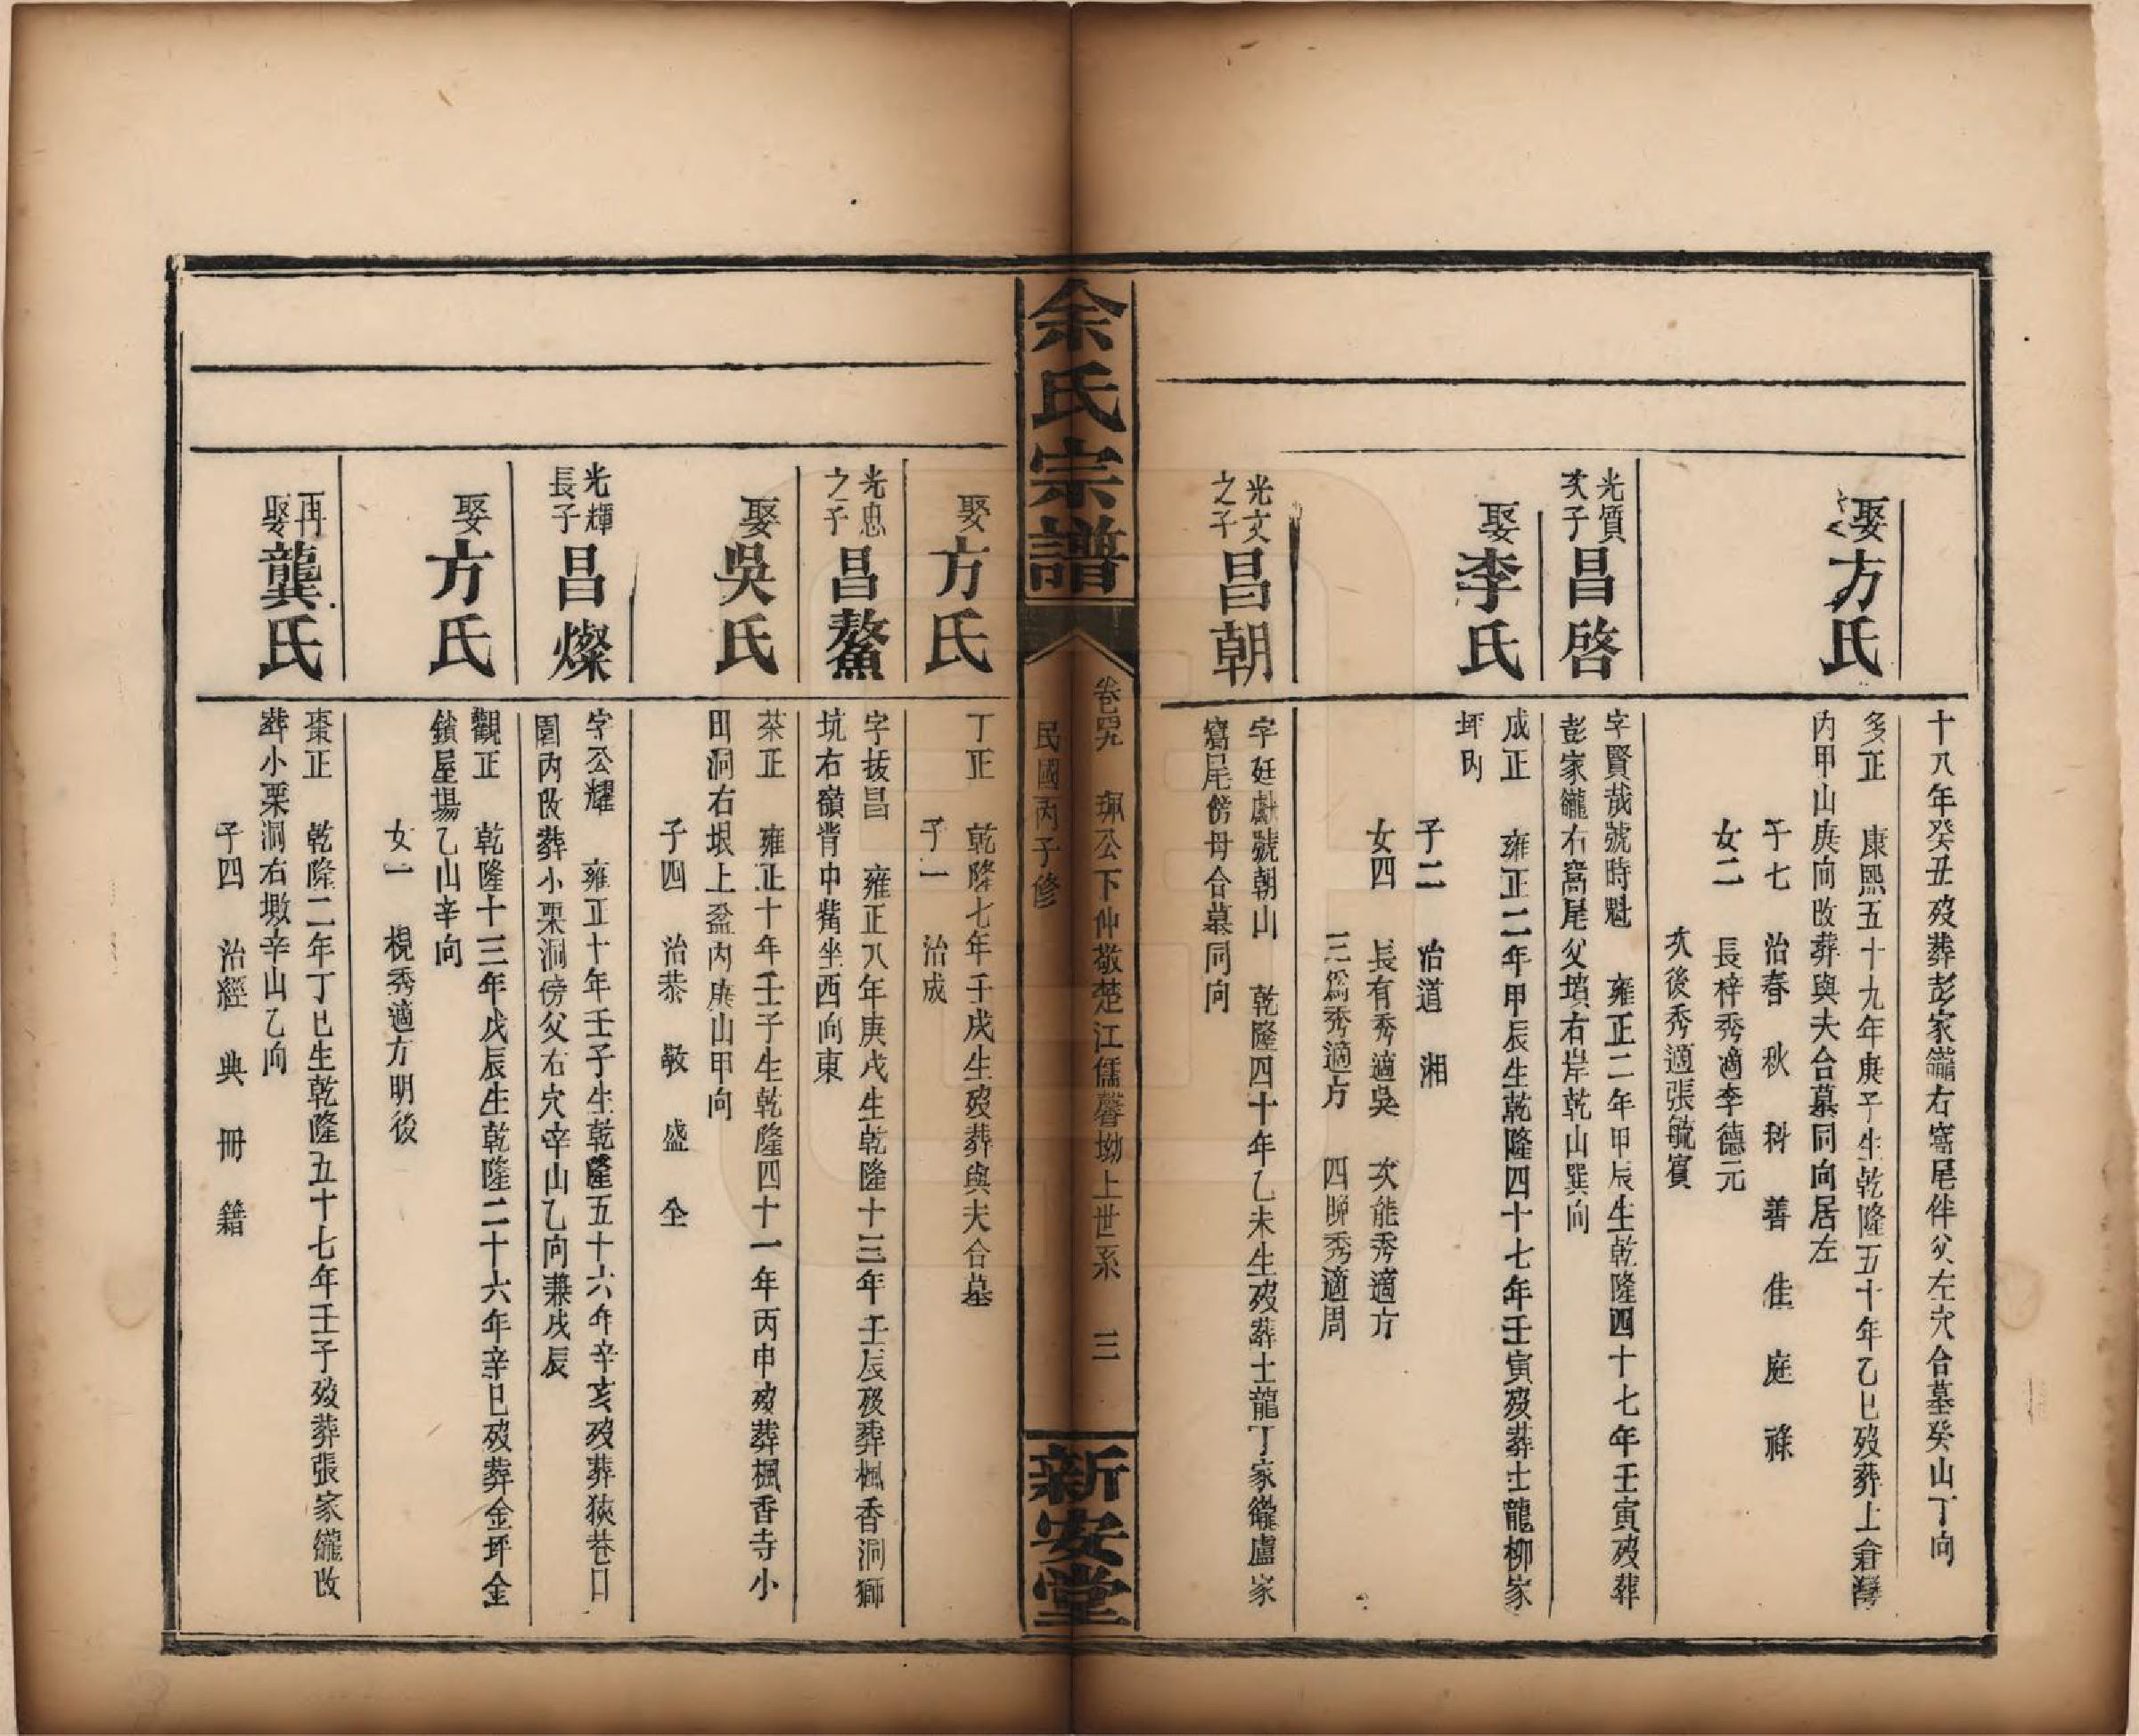 十八年癸丑歿葬彭家巃右窩尾伴父左穴合墓癸山丁向
娶方氏
多正 康熙五十九年庚子生乾隆五十年乙巳歿葬上倉灣
內甲山庚向改葬與夫合墓同向居左
子七 治春 秋 科 善 佳 庭 祿
女二 長梓秀適李德元
次後秀適張毓賓
光質
次子
昌啓
字賢哉號時魁 雍正二年甲辰生乾隆四十七年壬寅歿葬
彭家巃右窩尾父墳右岸乾山巽向
娶李氏
成正 雍正二年甲辰生乾隆四十七年壬寅歿葬士龍柳家
坪內
子二 治道 湘
女四 長有秀適吳 次能秀適方
三為秀適方 四晚秀適周
光文
之子
昌朝
字廷獻號朝山 乾隆四十年乙未生歿葬士龍丁家巃盧家
窩尾傍母合墓同向
余氏宗譜
卷 珮公下仲敬楚江儒馨坳上世系 三
民國丙子修
新安堂
娶方氏
丁正 乾隆七年壬戌生歿葬與夫合墓
子一 治成
光忠
之子
昌鰲
字拔昌 雍正八年庚戌生乾隆十三年壬辰歿葬楓香洞獅
坑右嶺背中嘴坐西向東
娶吳氏
茶正 雍正十年壬子生乾隆四十一年丙申歿葬楓香寺小
田洞右垠上盆內庚山甲向
子四 治恭 敬 盛 全
光輝
長子
昌燦
字公耀 雍正十年壬子生乾隆五十六年辛亥歿葬狹巷口
園內改葬小栗洞傍父右穴辛山乙向兼戌辰
娶方氏
觀正 乾隆十三年戊辰生乾隆二十六年辛巳歿葬金坪金
鎖屋場乙山辛向
女一 梘秀適方明後
再娶龔氏
棗正 乾隆二年丁巳生乾隆五十七年壬子歿葬張家巃改
葬小栗洞右墩辛山乙向
子四 治經 典 冊 籍